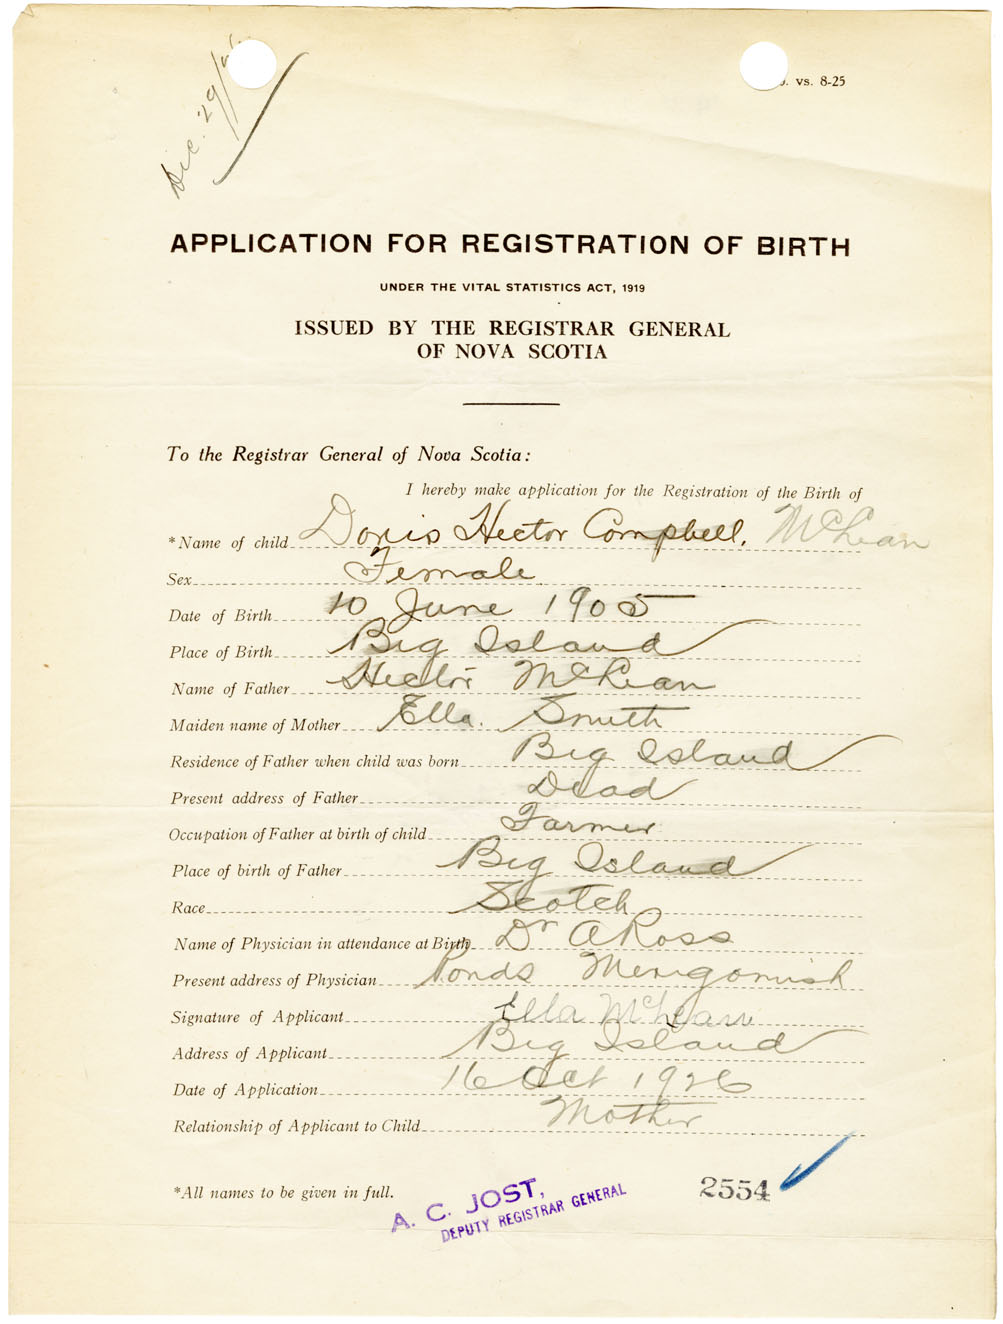 Dec. 29/26
vs. 8-25
APPLICATION FOR REGISTRATION OF BIRTH
UNDER THE VITAL STATISTICS ACT, 1919
ISSUED BY THE REGISTRAR GENERAL
OF NOVA SCOTIA
To the Registrar General of Nova Scotia:
I hereby make application for the Registration of the Birth of
*Name of child Doris Hector Campbell. McLean
Sex Female
Date of Birth 10 June 1905
Place of Birth Big Island
Name of Father Hector McLean
Maiden name of Mother Ella. Smith
Residence of Father when child was born Big Island
Present address of Father Dead
Occupation of Father at birth of child Farmer
Place of birth of Father Big Island
Race Scotch
Name of Physician in attendance at Birth Dr A Ross
Present address of Physician Ponds Merigomish
Signature of Applicant Ella McLean
Address of Applicant Big Island
Date of Application 16 Oct 1926
Relationship of Applicant to Child Mother
*All names to be given in full.
2554
A. C. JOST,
DEPUTY REGISTRAR GENERAL